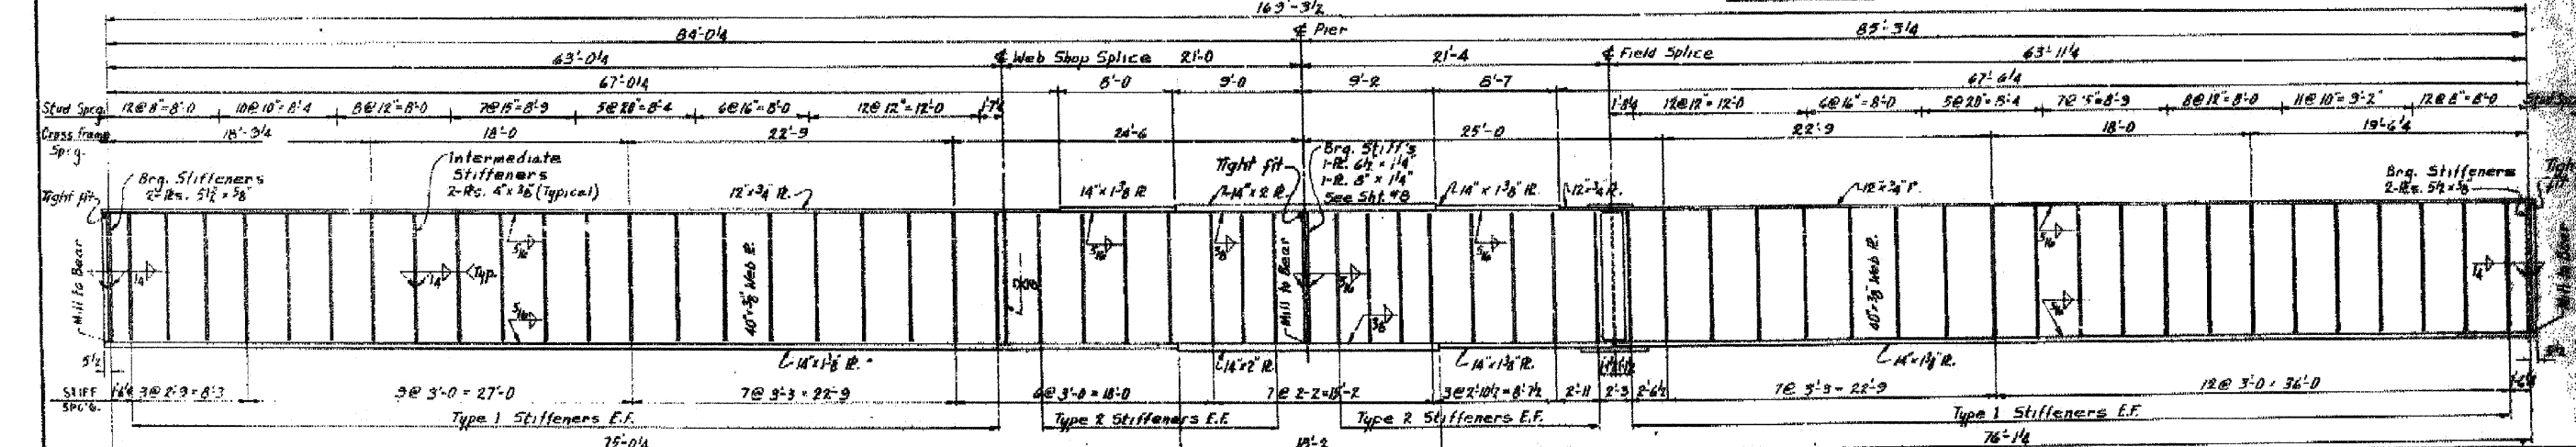 169'-3½
84'-0¼ ℄ Pier 85'-3¼
63'-0¼ ℄ Web Shop Splice 21'-0 21'-4 ℄ Field Splice 63'-11¼
67'-0¼ 8'-0 9'-0 9'-2 8'-7 67'-6¼
Stud Spcg. 12@8"=8'-0 10@10"=8'-4 8@12"=8'-0 7@15"=8'-9 5@20"=8'-4 6@16"=8'-0 12@12"=12'-0 12@12"=12'-0 6@16"=8'-0 5@20"=8'-4 8@12"=8'-0 11@10"=9'-2" 12@8"=8'-0
Cross frame Spcg. 18'-3¼ 18'-0 22'-9 24'-6 25'-0 22'-9 18'-0 19'-6¼
Tight fit
Brg. Stiffeners
2-℞s. 5½" x ⅝"
Intermediate
Stiffeners
2-℞s. 4" x ⅜" (Typical)
12" x ¾" ℞.
14" x 1⅜" ℞
Tight fit
14" x 2 ℞.
Brg. Stiff's
1-℞. 6½" x 1¼"
1-℞. 8" x 1¼"
See Sht. #8
14" x 1⅜" ℞.
12" x ¾" ℞.
12" x ¾" ℞.
Brg. Stiffeners
2-℞s. 5½ x ⅝
Mill to Bear
¼
¼ Typ.
5/16
5/16
40" x ⅜" Web ℞.
5/16
⅜
Mill to Bear
5/16
⅜
5/16
40" x ⅜" Web ℞.
5/16
5/16
¼
5½
14" x 1⅜" ℞.
14" x 2" ℞.
14" x 1⅜" ℞.
14" x 1⅜" ℞.
STIFF SPC'G. 3@2'-9=8'-3 9@3'-0=27'-0 7@3'-3=22'-9 6@3'-0=18'-0 7@2'-2=15'-2 3@2'-10½=8'-7½ 2'-11 2'-3 2'-6½ 7@3'-3=22'-9 12@3'-0=36'-0
Type 1 Stiffeners E.F. Type 2 Stiffeners E.F. Type 2 Stiffeners E.F. Type 1 Stiffeners E.F.
75'-0¼ 18'-2 76'-1¼